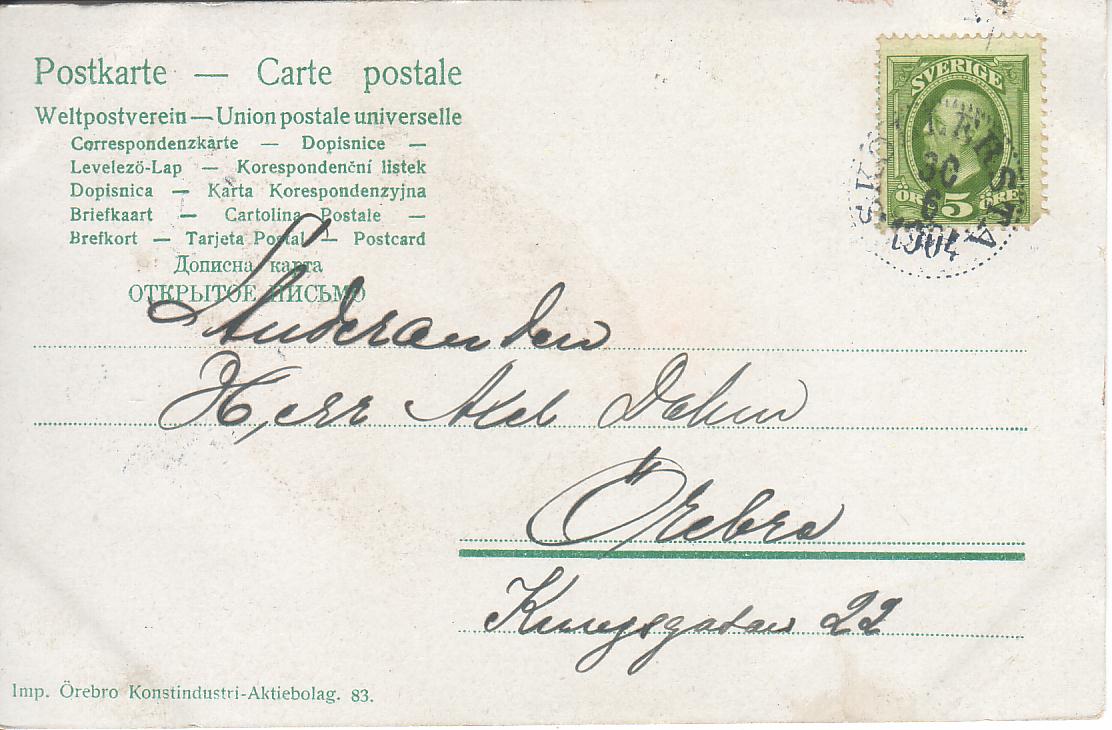 Postkarte — Carte postale
Weltpostverein — Union postale universelle
Correspondenzkarte — Dopisnice —
Levelező-Lap — Korespondenční listek
Dopisnica — Karta Korespondenzyjna
Briefkaart — Cartolina Postale —
Brefkort — Tarjeta Postal — Postcard
Дописна карта
ОТКРЫТОЕ ПИСЬМО
SVERIGE
5 ÖRE
30
6
1904
Studeranden
Herr Axel Dahm
Örebro
Kungsgatan 22
Imp. Örebro Konstindustri-Aktiebolag. 83.